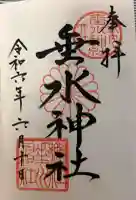 奉拝
垂水神社
令和六年六月十日